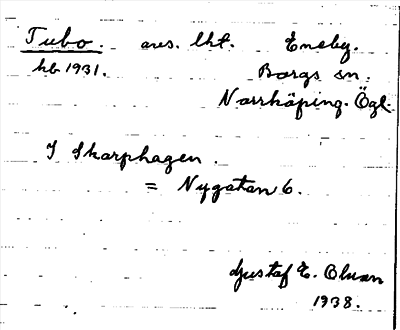 Tubo. avs. lht. Eneby.
hb 1931. Borgs sn.
Norrköping. Ögl.
I Skarphagen.
= Nygatan 6.
Gustaf E. Olman
1938.